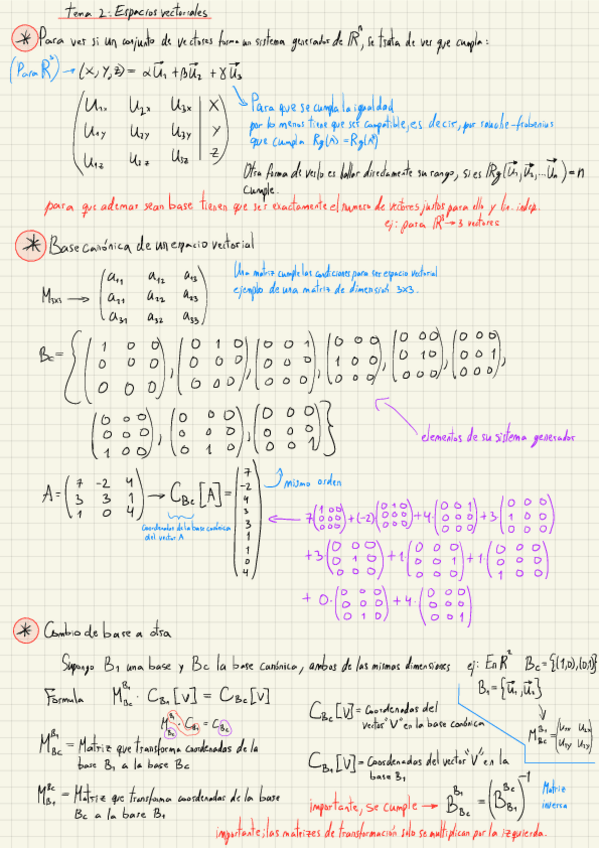 Tema 2: Espacios vectoriales
* Para ver si un conjunto de vectores forma un sistema generador de ℝⁿ, se trata de ver que cumpla:
(Para ℝ³) → (x, y, z) = αu⃗₁ + βu⃗₂ + γu⃗₃
(U₁ₓ U₂ₓ U₃ₓ | X)
(U₁y U₂y U₃y | Y)
(U₁z U₂z U₃z | Z)
Para que se cumpla la igualdad
por lo menos tiene que ser compatible, es decir, por rouche-frobenius
que cumpla Rg(A) = Rg(A*)
Otra forma de verlo es hallar directamente su rango, si es Rg(u⃗₁, u⃗₂, ... u⃗ₙ) = n
cumple.
para que ademas sean base tienen que ser exactamente el numero de vectores justos para ello y lin. indep.
ej: para ℝ³ → 3 vectores
* Base canónica de un espacio vectorial
Una matriz cumple las condiciones para ser espacio vectorial
ejemplo de una matriz de dimensión 3x3.
(a₁₁ a₁₂ a₁₃)
M₃ₓ₃ → (a₂₁ a₂₂ a₂₃)
(a₃₁ a₃₂ a₃₃)
Bc = {(1 0 0 / 0 0 0 / 0 0 0), (0 1 0 / 0 0 0 / 0 0 0), (0 0 1 / 0 0 0 / 0 0 0), (0 0 0 / 1 0 0 / 0 0 0), (0 0 0 / 0 1 0 / 0 0 0), (0 0 0 / 0 0 1 / 0 0 0),
(0 0 0 / 0 0 0 / 1 0 0), (0 0 0 / 0 0 0 / 0 1 0), (0 0 0 / 0 0 0 / 0 0 1)}
elementos de su sistema generador
A = (7 -2 4 / 3 3 1 / 1 0 4) → C_Bc [A] = (7 / -2 / 4 / 3 / 3 / 1 / 1 / 0 / 4)
mismo orden
coordenadas de la base canónica
del vector A
7·(1 0 0 / 0 0 0 / 0 0 0) + (-2)·(0 1 0 / 0 0 0 / 0 0 0) + 4·(0 0 1 / 0 0 0 / 0 0 0) + 3·(0 0 0 / 1 0 0 / 0 0 0)
+3·(0 0 0 / 0 1 0 / 0 0 0) + 1·(0 0 0 / 0 0 1 / 0 0 0) + 1·(0 0 0 / 0 0 0 / 1 0 0)
+ 0·(0 0 0 / 0 0 0 / 0 1 0) + 4·(0 0 0 / 0 0 0 / 0 0 1)
* Cambio de base a otra
Supongo B₁ una base y Bc la base canónica, ambas de las mismas dimensiones ej: En ℝ² Bc = {(1,0),(0,1)}
B₁ = {u⃗₁, u⃗₂}
Formula M_Bc^B₁ · C_B₁ [V] = C_Bc [V]
M_Bc^B₁ · C_B₁ = C_Bc
M_Bc^B₁ = (U₁ₓ U₂ₓ / U₁y U₂y)
C_Bc [V] = Coordenadas del
vector "V" en la base canónica
M_Bc^B₁ = Matriz que transforma coordenadas de la
base B₁ a la base Bc
C_B₁ [V] = Coordenadas del vector "V" en la
base B₁
M_B₁^Bc = Matriz que transforma coordenadas de la base
Bc a la base B₁
importante, se cumple → B_Bc^B₁ = (B_B₁^Bc)⁻¹
Matriz
inversa
importante; las matrizes de transformación solo se multiplican por la izquierda.